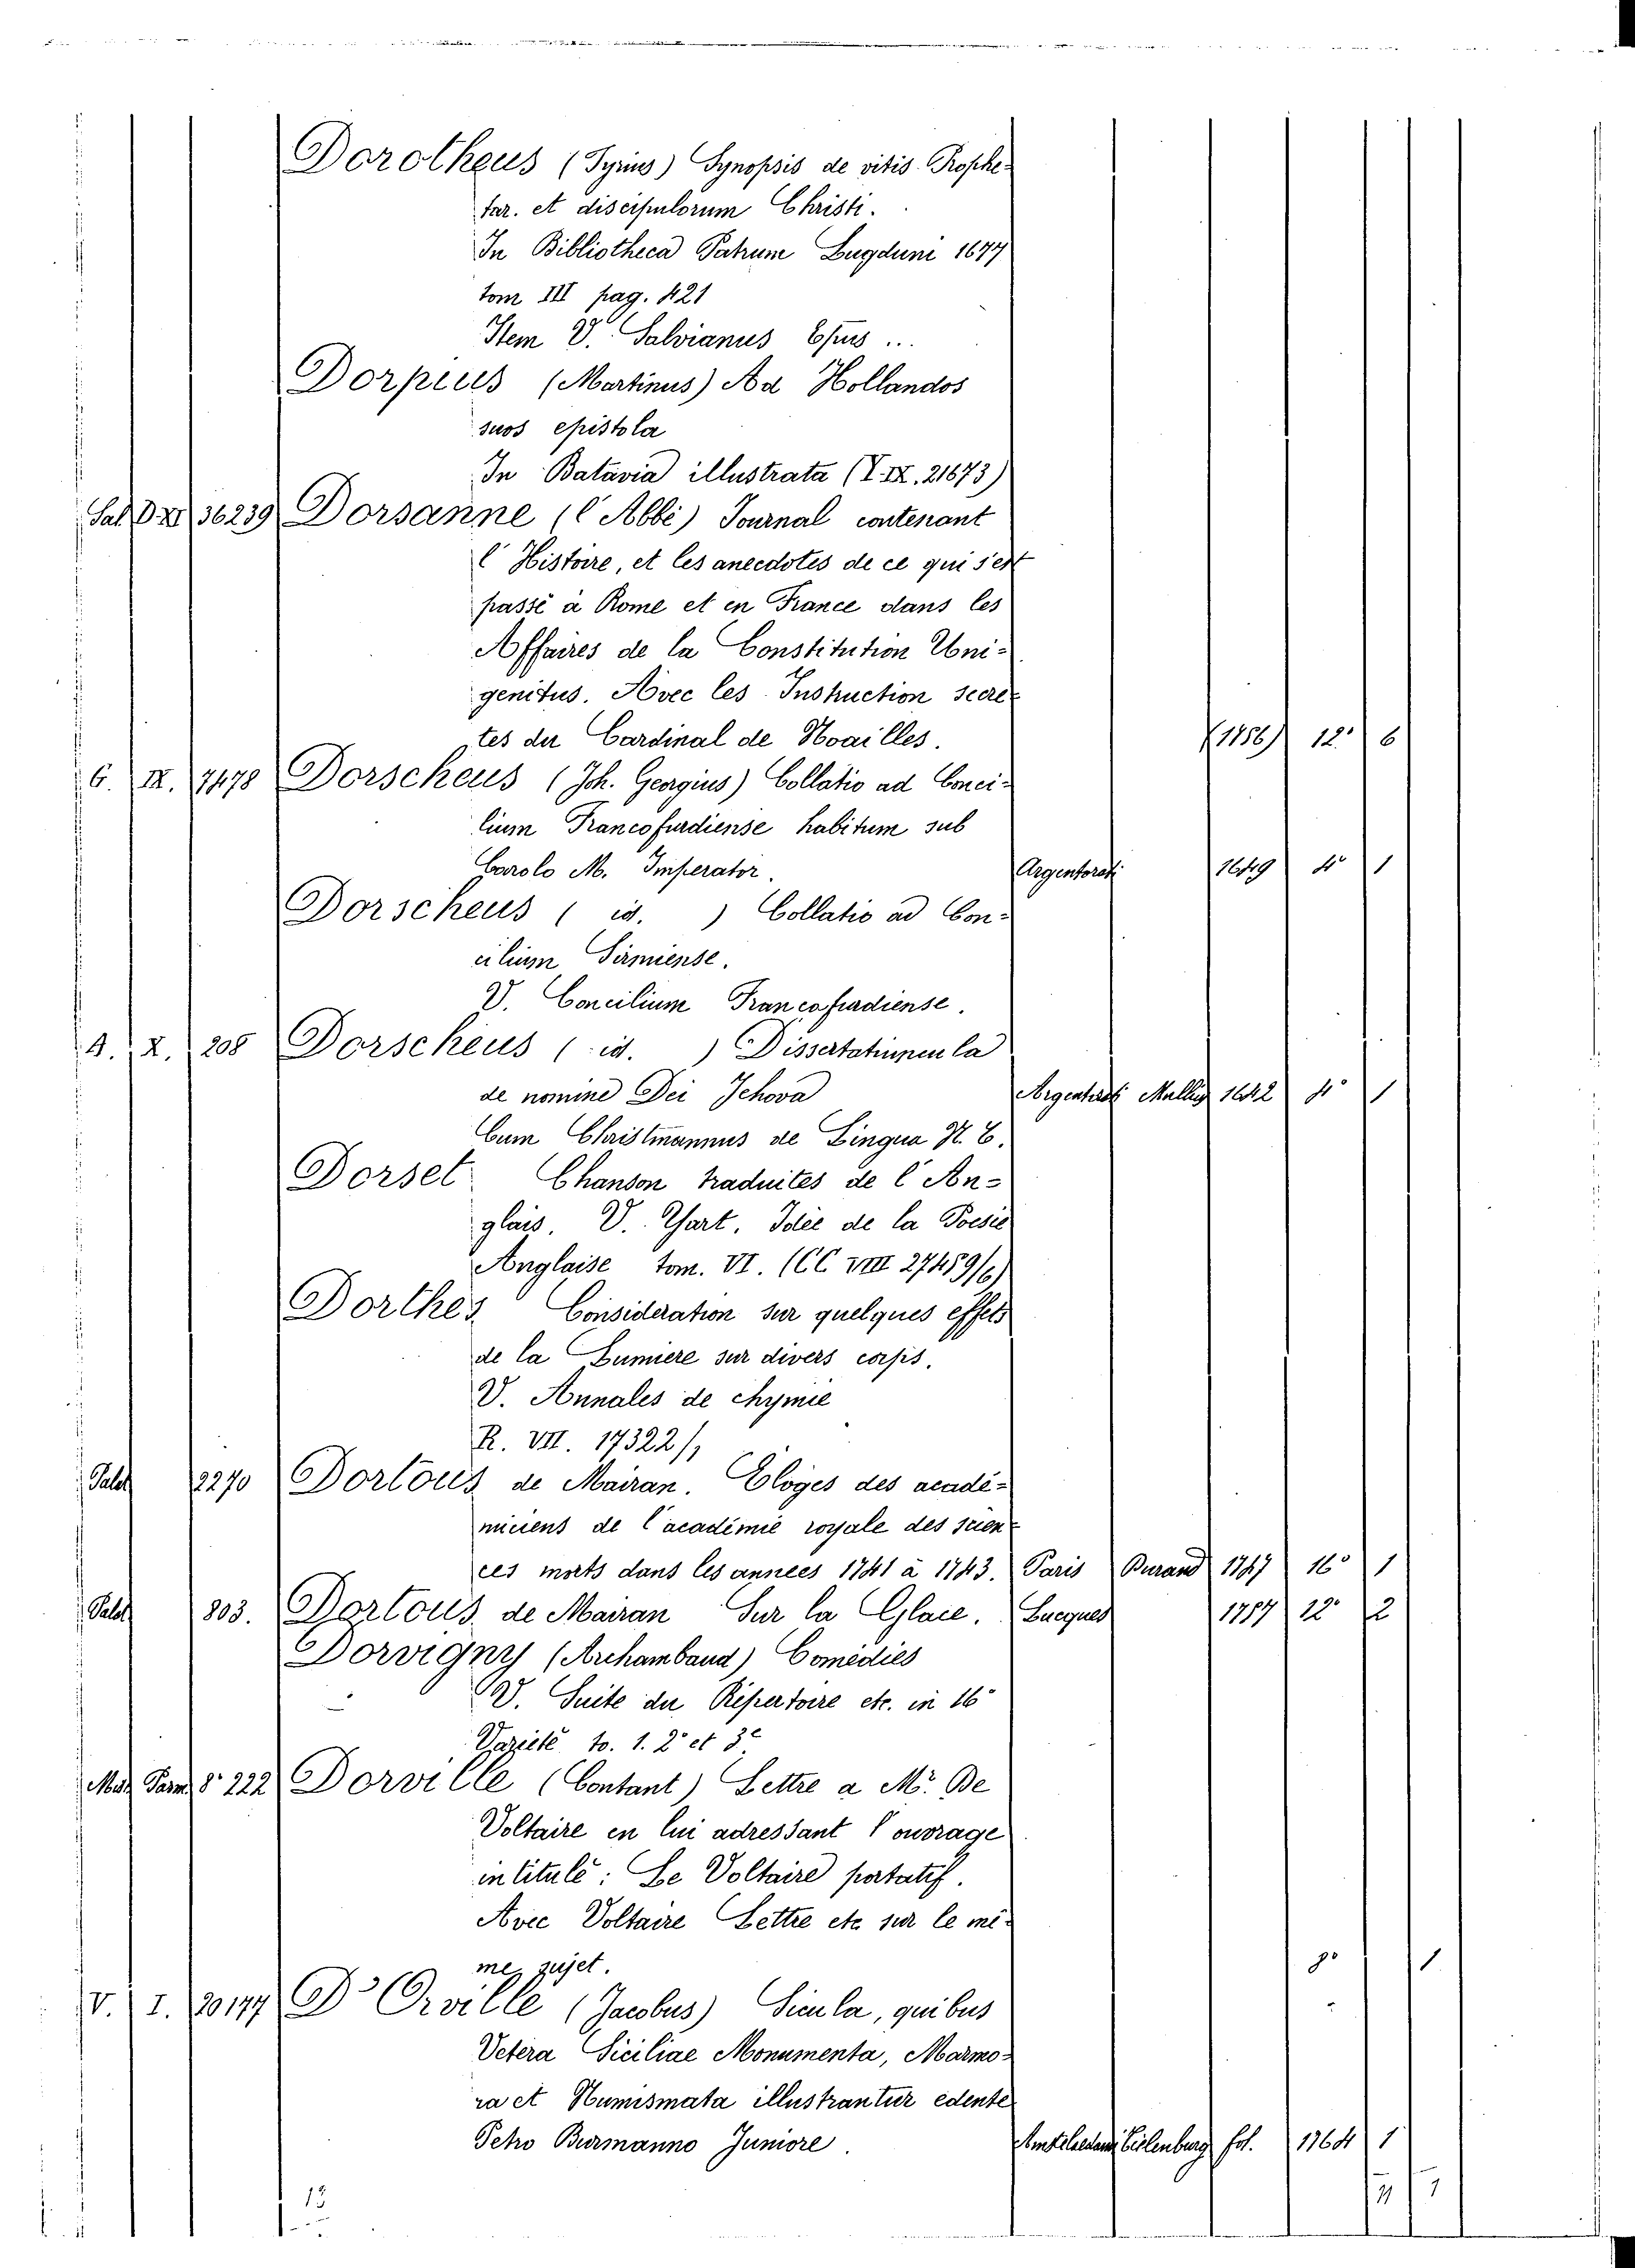 Dorotheus (Tyrius) Synopsis de vitis Prophe-
tar. et discipulorum Christi.
In Bibliotheca Patrum Lugduni 1677
tom III pag. 421
Item V. Salvianus Opus ...
Dorpius (Martinus) Ad Hollandos
suos epistola
In Batavia illustrata (V. IX. 21673)
Sal D XI 36239 Dorsanne (l'Abbé) Journal contenant
l'Histoire, et les anecdotes de ce qui s'est
passé à Rome et en France dans les
Affaires de la Constitution Uni-
genitus. Avec les Instruction secre-
tes du Cardinal de Noailles. (1756) 12° 6
G. IX. 7478 Dorscheus (Joh. Georgius) Collatio ad Conci-
lium Francofurdiense habitum sub
Carolo M. Imperator. Argentorati 1649 4° 1
Dorscheus ( id. ) Collatio ad Con-
cilium Sirmiense.
V. Concilium Francofurdiense.
A. X. 208 Dorscheus ( id. ) Dissertatiuncula
de nomine Dei Jehova Argentorati 1642 4° 1
Cum Christmannus de Lingua N. E.
Dorset Chanson traduites de l'An-
glais. V. Yart. Idée de la Poesie
Anglaise tom. VI. (CC VIII 27459/6)
Dorthes Consideration sur quelques effets
de la Lumiere sur divers corps.
V. Annales de chymie
R. VII. 17322/1
Palat 2270 Dortous de Mairan. Eloges des acadé-
miciens de l'académie royale des scien-
ces morts dans les années 1741 à 1743. Paris Durand 1747 16° 1
Palat 803. Dortous de Mairan Sur la Glace. Lucques 12° 2
Dorvigny (Archambaud) Comédies
V. Suite du Répertoire etc. in 16°
Varieté to. 1. 2° et 3e
Parm 8° 222 Dorville (Contant) Lettre a Mr. De
Voltaire en lui adressant l'ouvrage
intitulé: Le Voltaire portatif.
Avec Voltaire Lettre etc sur le mê-
me sujet. 8° 1
V. I. 20177 D'Orville (Jacobus) Sicula, quibus
Vetera Siciliae Monumenta, Marmo-
ra et Numismata illustrantur edente
Petro Burmanno Juniore. fol. 1764 1
13